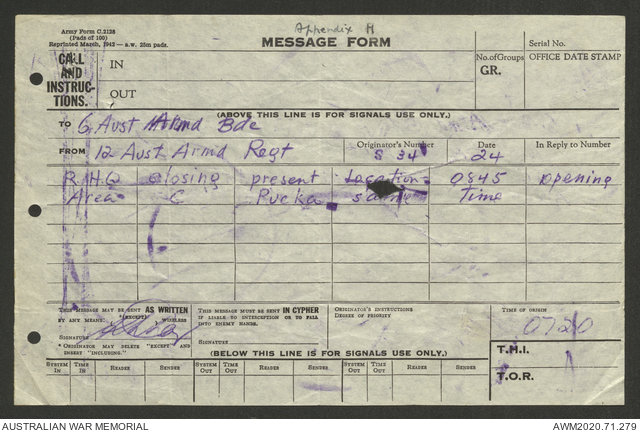 Appendix H
Army Form C.2128
(Pads of 100)
Reprinted March, 1942 — a.w. 25m pads.
MESSAGE FORM
Serial No.
CALL AND INSTRUC-TIONS.
IN
OUT
No. of Groups
GR.
OFFICE DATE STAMP
(ABOVE THIS LINE IS FOR SIGNALS USE ONLY.)
TO 6 Aust Armd Bde
FROM 12 Aust Armd Regt
Originator's Number
S 34
Date
24
In Reply to Number
R.H.Q closing present Location 0845 opening
Area C Pucka same Time
THIS MESSAGE MAY BE SENT AS WRITTEN
BY ANY MEANS (EXCEPT) WIRELESS
SIGNATURE
* ORIGINATOR MAY DELETE "EXCEPT" AND
INSERT "INCLUDING."
THIS MESSAGE MUST BE SENT IN CYPHER
IF LIABLE TO INTERCEPTION OR TO FALL
INTO ENEMY HANDS.
SIGNATURE
ORIGINATOR'S INSTRUCTIONS
DEGREE OF PRIORITY
TIME OF ORIGIN
0720
T.H.I.
T.O.R.
(BELOW THIS LINE IS FOR SIGNALS USE ONLY.)
SYSTEM IN TIME IN READER SENDER SYSTEM OUT TIME OUT READER SENDER SYSTEM OUT TIME OUT READER SENDER
AUSTRALIAN WAR MEMORIAL
AWM2020.71.279